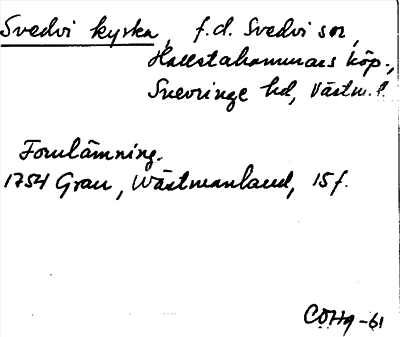 Svedvi kyrka, f.d. Svedvi sn,
Hallstahammars köp.,
Snevringe hd, Västm. l.
Fornlämning.
1754 Grau, Wästmanland, 15 f.
COHg-61